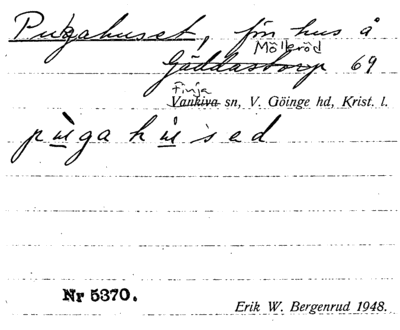 Pukahuset, f.n hus å
Mölleröd
Gäddastorp 69
Finja
Vankiva sn, V. Göinge hd, Krist. l.
pùgahùsed
Nr 5370.
Erik W. Bergenrud 1948.